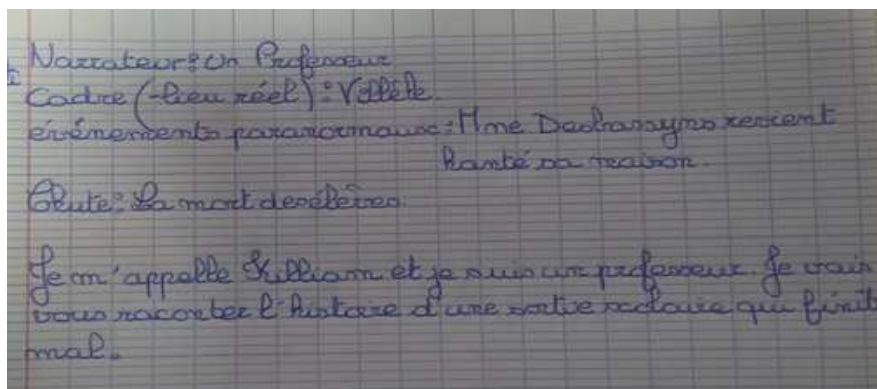 Narrateur : Un Professeur
Cadre (-lieu réel) : Villèle
événements paranormaux : Mme Desbassyns revient
hanté sa maison.
Chute : La mort des élèves
Je m'appelle Killiam et je suis un professeur. Je vais
vous raconter l'histoire d'une sortie scolaire qui finit
mal.